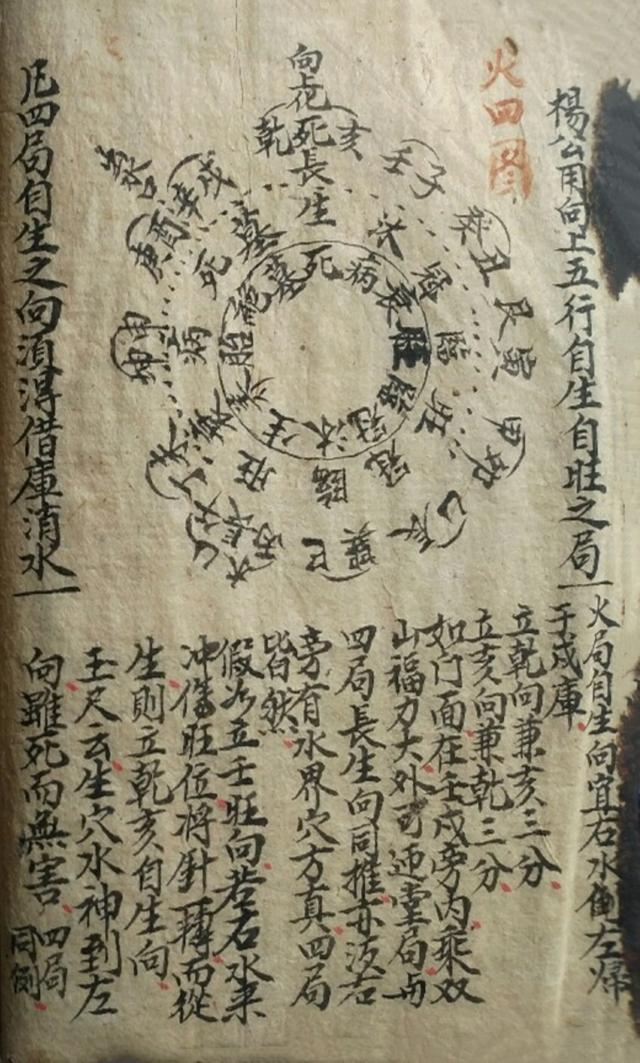 火四图
楊公用向上五行自生自旺之局
向
死
乾
亥
長
生
壬子
癸丑
艮寅
辛戌
庚酉
坤申
巽巳
沐
冠
臨
旺
墓
死
病
冠
臨
旺
墓
死
病
衰
旺
臨
冠
沐
生
养
胎
絕
凡四局自生之向須得借庫消水
火局自生向宜右水倒左歸
于戌庫
立乾向兼亥三分
立亥向兼乾三分
如门面在壬戌旁内乘双
山福力大外可迎堂局与
四局長生向同推亦須右
旁有水界穴方真四局
皆然
假如立壬旺向若右水来
冲傷旺位将針一轉而從
生則立乾亥自生向
玉尺云生穴水神到左
向雖死而無害
四局
同倒